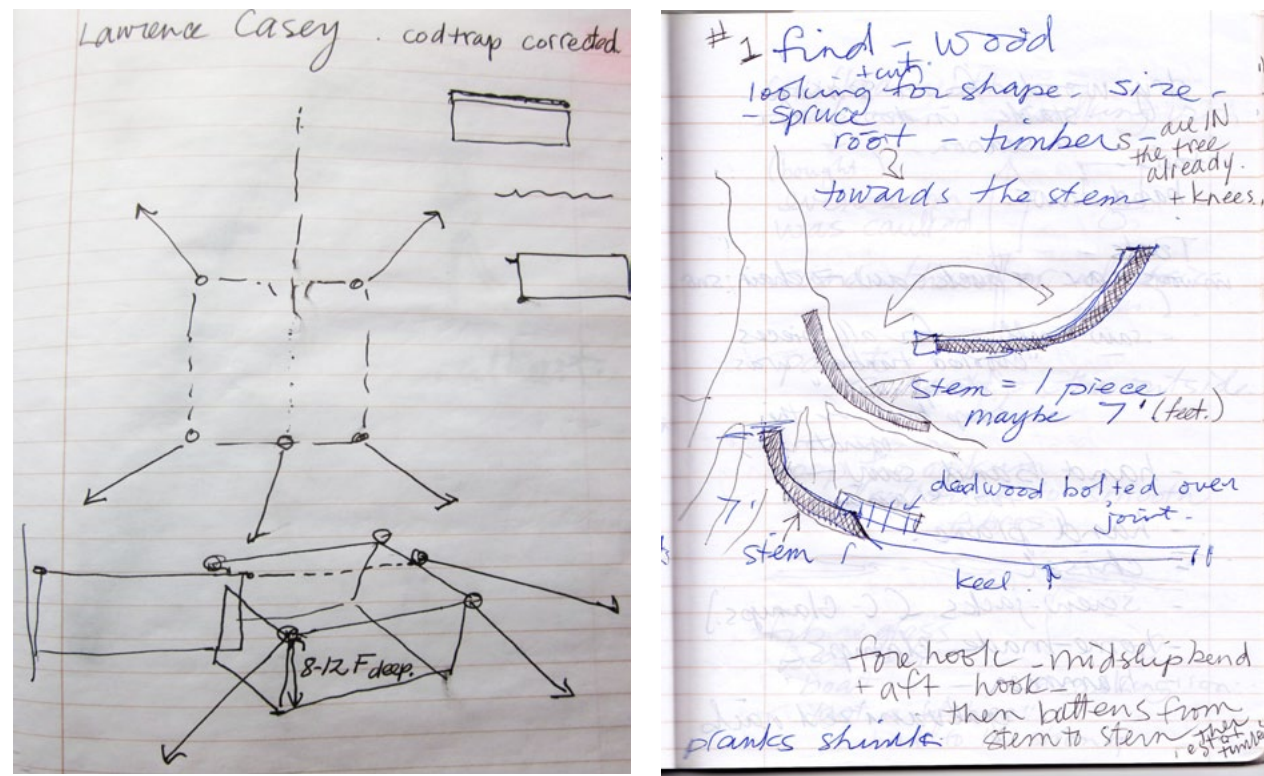 Lawrence Casey . codtrap corrected
8-12 F deep.
#1 find - wood
+ cut.
looking for shape - size -
- spruce
root - timbers - are IN
the tree
already.
towards the stem + knees.
stem = 1 piece
maybe 7' (feet.)
7'
deadwood bolted over
joint.
stem
keel.
forehook - midship bend
+ aft hook -
then battens from
planks shrink. stem to stern then
rest of
timbers